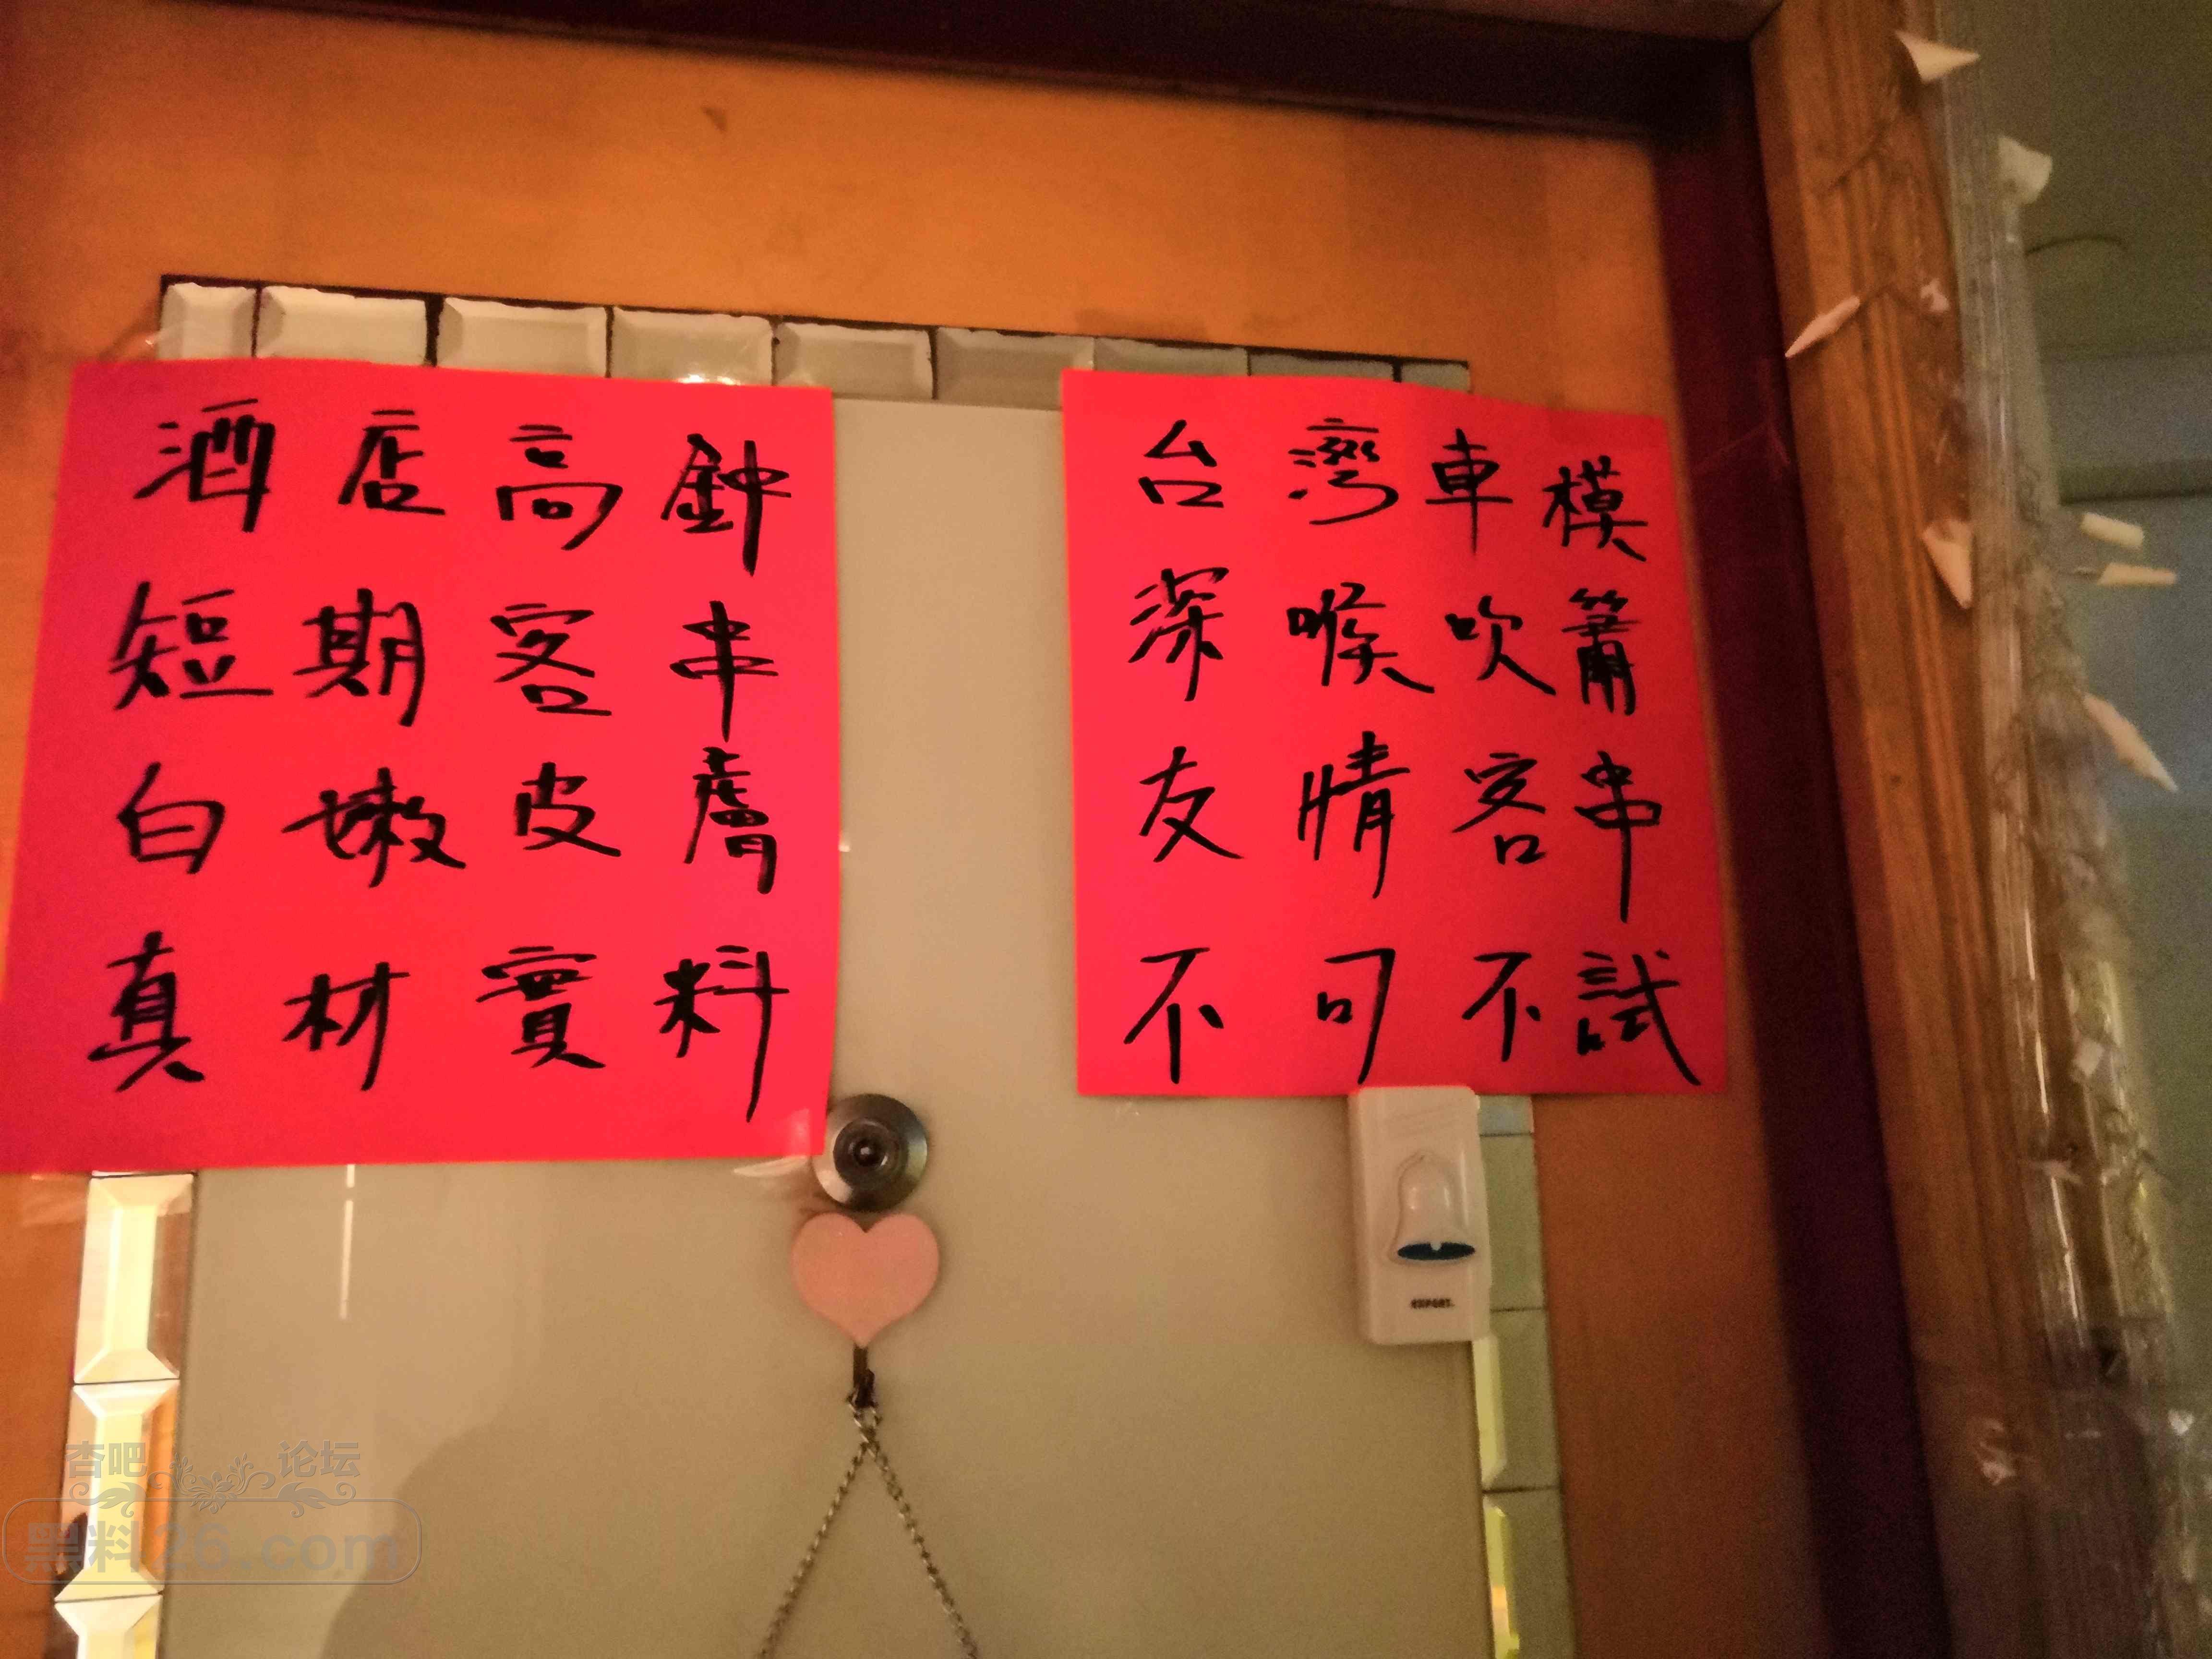 酒店高鈡
短期客串
白嫩皮膚
真材實料
台灣車模
深喉吹簫
友情客串
不可不試
EXPORT.
杏吧 论坛
黑料26.com